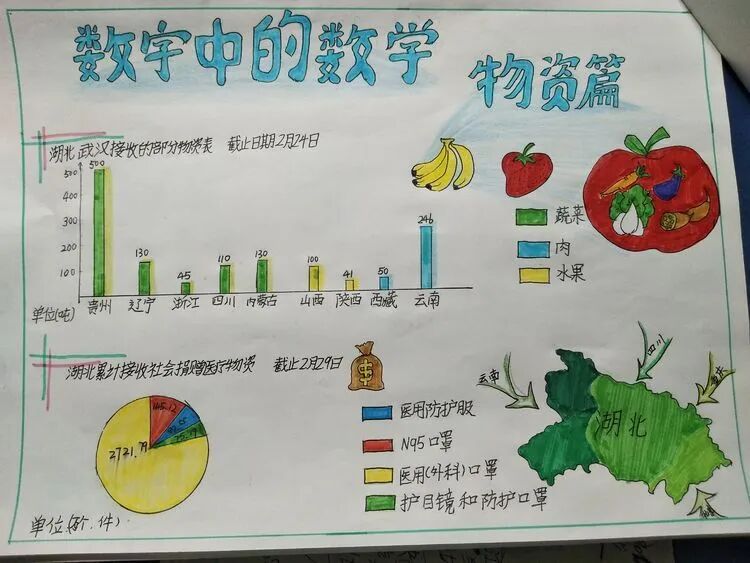 数字中的数学
物资篇
湖北武汉接收的部分物资表 截止日期2月24日
500
500
400
300
200
100
130
45
110
130
100
41
50
246
单位(吨)
贵州 辽宁 浙江 四川 内蒙古 山西 陕西 西藏 云南
蔬菜
肉
水果
湖北累计接收社会捐赠医疗物资 截止2月29日
2721.79
医用防护服
N95口罩
医用(外科)口罩
护目镜和防护口罩
云南
四川
重庆
湖北